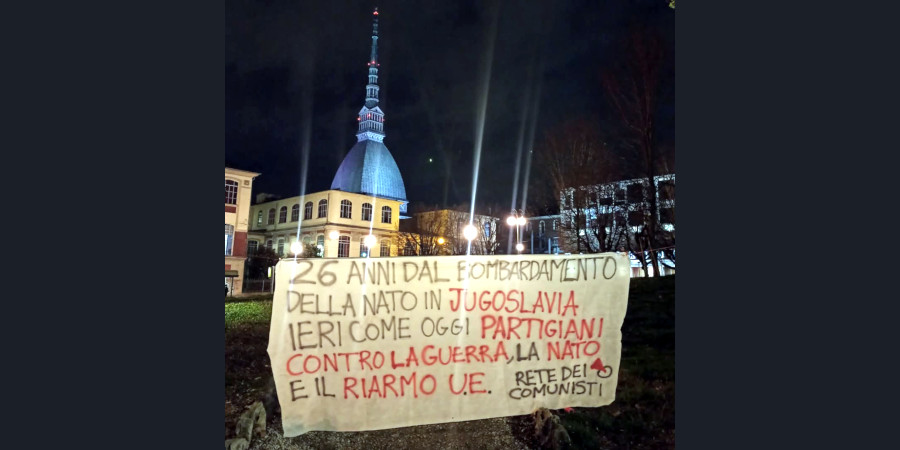 26 ANNI DAL BOMBARDAMENTO
DELLA NATO IN JUGOSLAVIA
IERI COME OGGI PARTIGIANI
CONTRO LA GUERRA, LA NATO
E IL RIARMO U.E.
RETE DEI
COMUNISTI